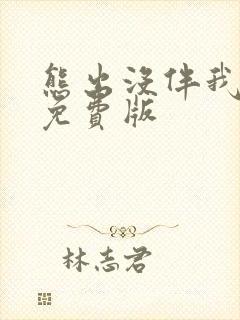 熊出没伴我
免費版
林志君